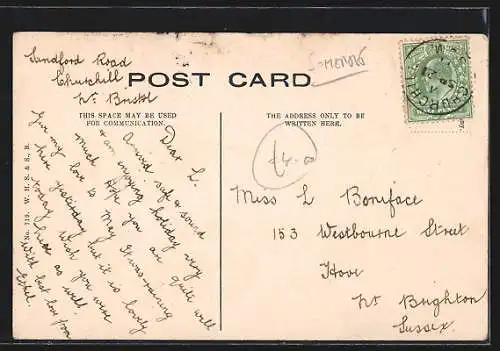 Sandford Road
Churchill
Nr. Bristol
POST CARD
MENDIPS
CHURCHILL
THIS SPACE MAY BE USED
FOR COMMUNICATION.
THE ADDRESS ONLY TO BE
WRITTEN HERE.
£4-00
Dear L.
Arrived safe & sound
& am enjoying holiday very
much. Hope you are quite well
Give my love to May. It was raining
here yesterday but it is lovely
today. Wish you were
here as well.
With best love from
Ethel.
No. 119. W. H. S. & S., B.
Miss L Boniface
153 Westbourne Street
Hove
Nr Brighton
Sussex.